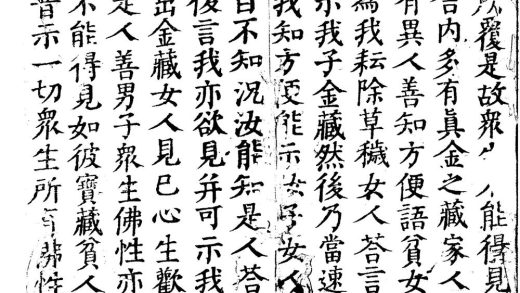 所覆是故衆能得見
舍内多有真金之藏家人
有異人善知方便語貧女
爲我耘除草穢女人荅言
示我子金藏然後乃當速
我知方便能示汝子女人
自不知況汝能知是人荅
後言我亦欲見并可示我
出金藏女人見已心生歡
是人善男子衆生佛性亦
不能得見如彼寶藏貧人
普示一切衆生所有佛性